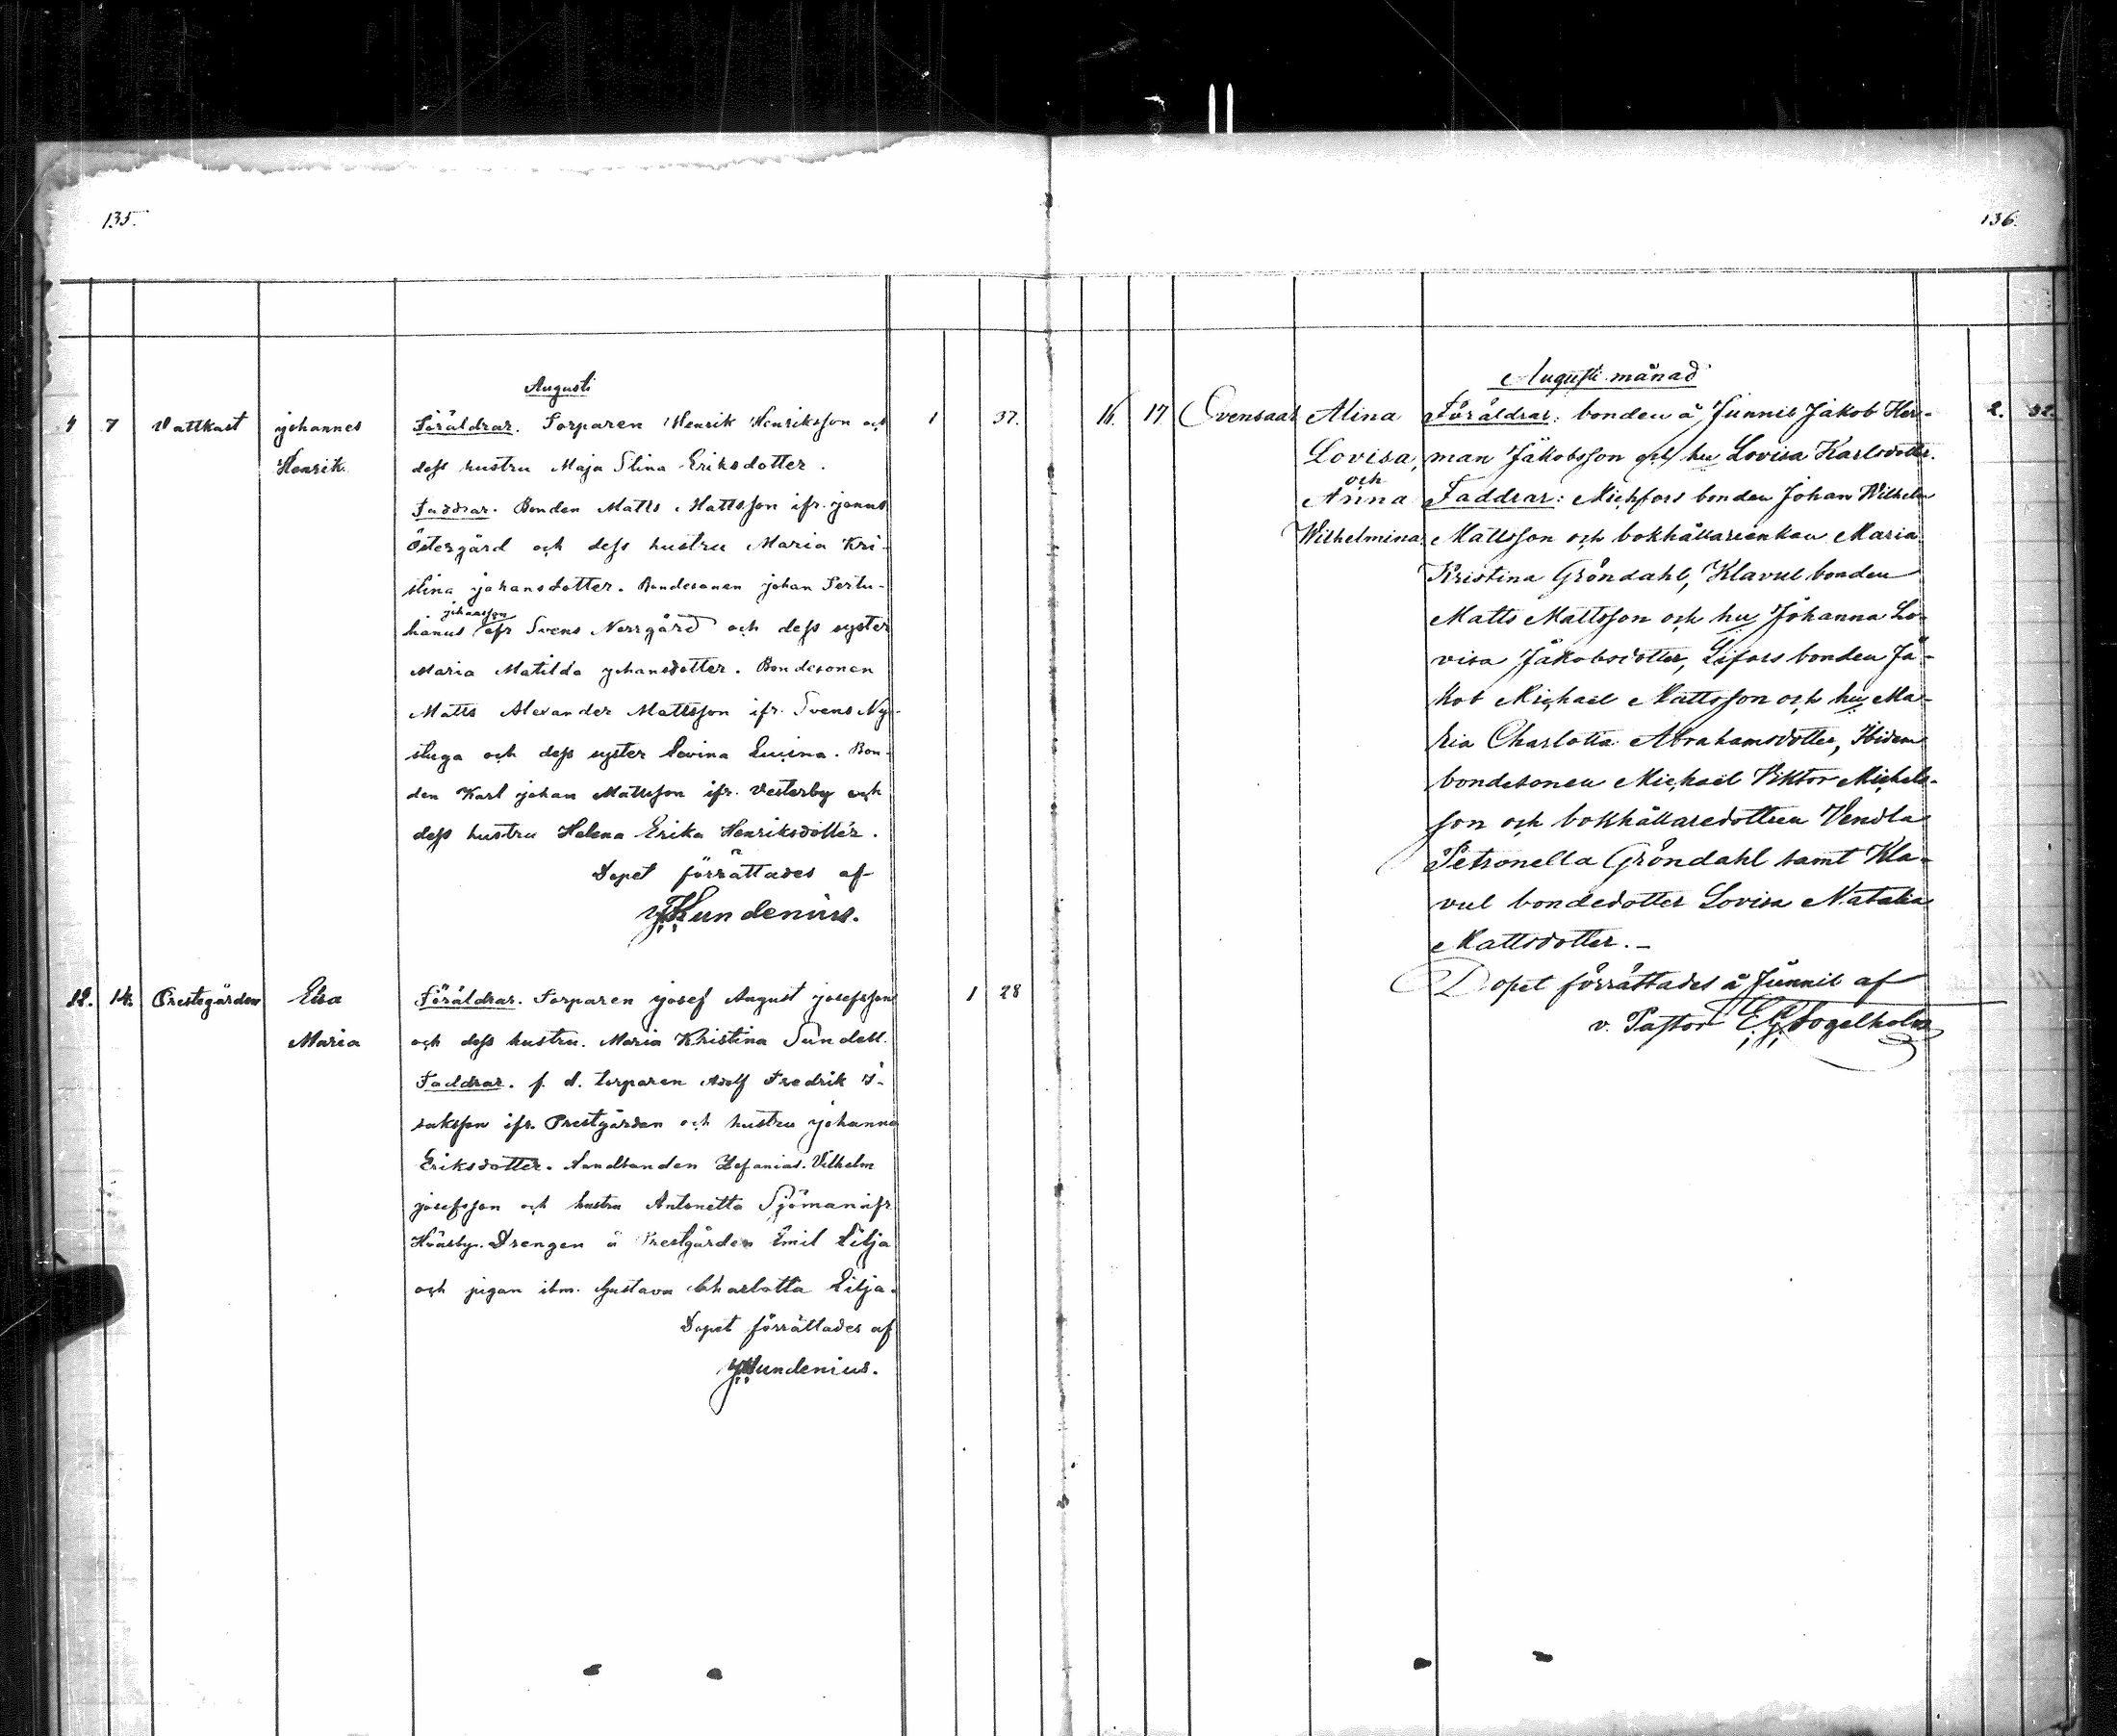 135.
Augusti
4 7 Vattkast Johannes Föräldrar. Torparen Henrik Henriksson och 1 37.
Henrik dess hustru Maja Stina Eriksdotter.
Faddrar. Bonden Matts Mattsson ifr. Jonns
Östergård och dess hustru Maria Kri-
stina Johansdotter. Bondesonen Johan Fertu-
johansson
hanus ifr Svens Norrgård och dess syster
Maria Matilda Johansdotter. Bondesonen
Matts Alexander Mattsson ifr. Svens Ny-
stuga och dess syster Levina. Bon-
den Karl Johan Mattsson ifr. Vesterby och
dess hustru Helena Erika Henriksdotter.
Dopet förrättades af
Sundenius.
12. 14. Prestgården Elsa Föräldrar. Torparen Josef August Josefsson 1 28
Maria och dess hustru. Maria Kristina Sundell.
Faddrar. f. d. torparen Adolf Fredrik I-
saksson ifr. Prestgården och hustru Johanna
Eriksdotter. Landbonden Zefanias Vilhelm
Josefsson och hustru Antonetta Sjöman ifr
Hväsby. Drengen å Prestgården Emil Lilja
och pigan ibm. Gustava Charlotta Lilja.
Dopet förrättades af
Sundenius.
136.
Augusti månad
16. 17. Ovensaar Alina Föräldrar: bonden å Junnis Jakob Her- 2. 32.
Lovisa, man Jakobsson och hu Lovisa Karlsdotter.
och
Anna Faddrar: Michfors bonden Johan Wilhelm
Wilhelmina Mattsson och bokhållareenkan Maria
Kristina Gröndahl, Klavul bonden
Matts Mattsson och hu Johanna Lo-
visa Jakobsdotter, Lifors bonden Ja-
kob Michael Mattsson och hu Ma-
ria Charlotta Abrahamsdotter, Ibidem
bondesonen Michael Viktor Michels-
son och bokhållaredottren Vendla
Petronella Gröndahl samt Kla-
vul bondedotter Lovisa Natalia
Mattsdotter. -
Dopet förrättades å Junnis af
v. Pastor Fogelholm